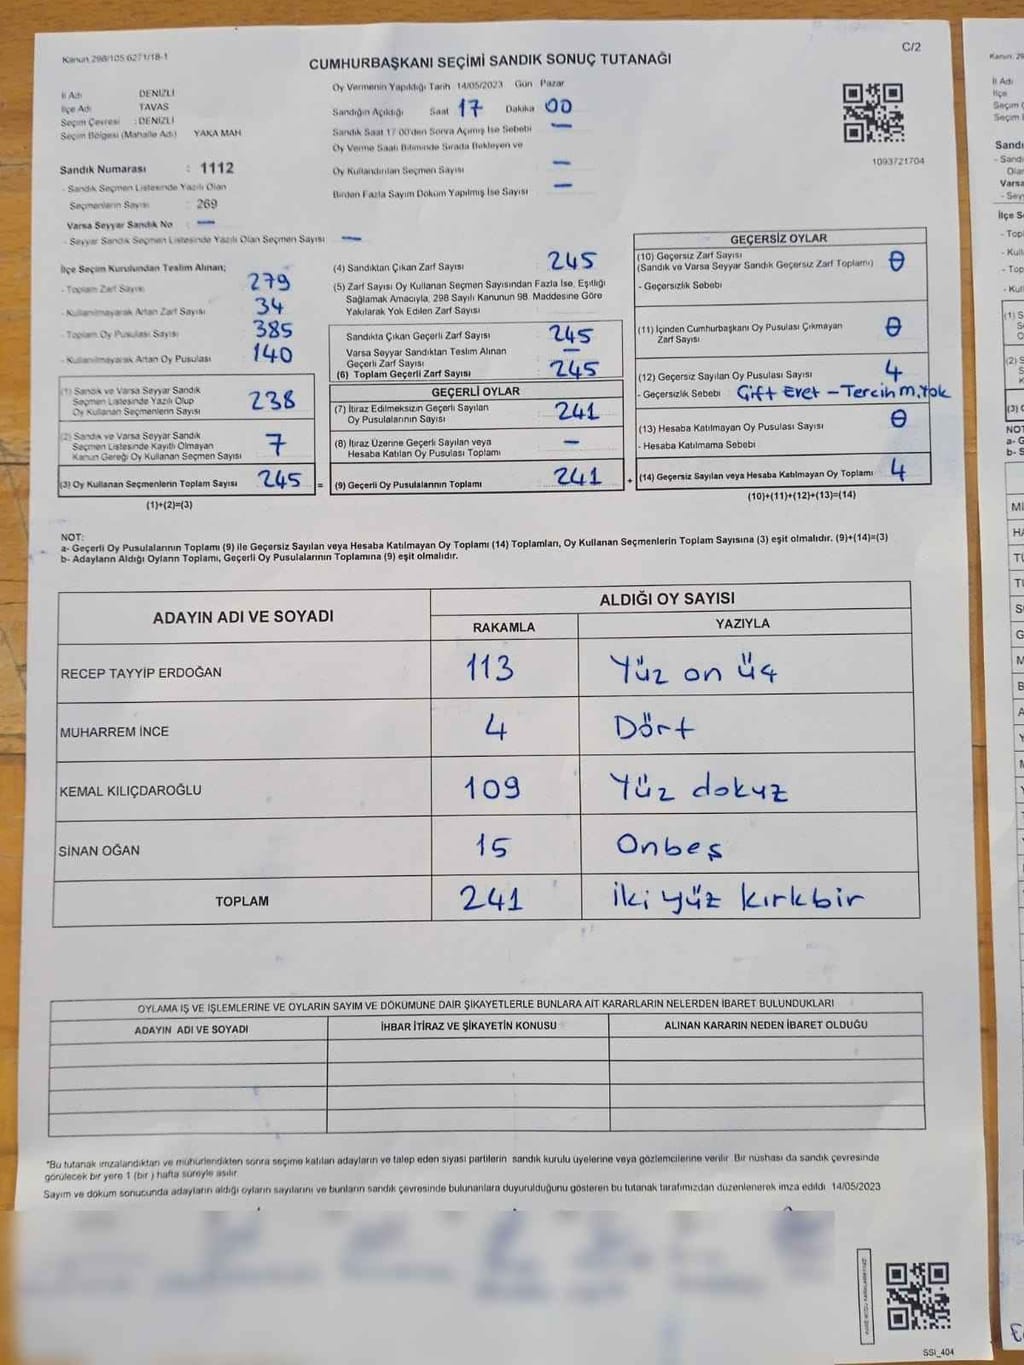 Kanun 298/105 6271/18-1
C/2
CUMHURBAŞKANI SEÇİMİ SANDIK SONUÇ TUTANAĞI
İl Adı DENİZLİ
İlçe Adı TAVAS
Seçim Çevresi : DENİZLİ
Seçim Bölgesi (Mahalle Adı) YAKA MAH
Oy Vermenin Yapıldığı Tarih 14/05/2023 Gün Pazar
Sandığın Açıldığı Saat 17 Dakika 00
Sandık Saat 17 00'den Sonra Açılmış İse Sebebi —
Oy Verme Saati Bitiminde Sırada Bekleyen ve
Oy Kullandırılan Seçmen Sayısı —
Birden Fazla Sayım Döküm Yapılmış İse Sayısı —
1093721704
Sandık Numarası : 1112
- Sandık Seçmen Listesinde Yazılı Olan
Seçmenlerin Sayısı : 269
Varsa Seyyar Sandık No —
- Seyyar Sandık Seçmen Listesinde Yazılı Olan Seçmen Sayısı —
İlçe Seçim Kurulundan Teslim Alınan;
- Toplam Zarf Sayısı 279
- Kullanılmayarak Artan Zarf Sayısı 34
- Toplam Oy Pusulası Sayısı 385
- Kullanılmayarak Artan Oy Pusulası 140
(1) Sandık ve Varsa Seyyar Sandık
Seçmen Listesinde Yazılı Olup
Oy Kullanan Seçmenlerin Sayısı 238
(2) Sandık ve Varsa Seyyar Sandık
Seçmen Listesinde Kayıtlı Olmayan
Kanun Gereği Oy Kullanan Seçmen Sayısı 7
(3) Oy Kullanan Seçmenlerin Toplam Sayısı 245
(1)+(2)=(3)
(4) Sandıktan Çıkan Zarf Sayısı 245
(5) Zarf Sayısı Oy Kullanan Seçmen Sayısından Fazla İse, Eşitliği
Sağlamak Amacıyla, 298 Sayılı Kanunun 98. Maddesine Göre
Yakılarak Yok Edilen Zarf Sayısı
Sandıkta Çıkan Geçerli Zarf Sayısı 245
Varsa Seyyar Sandıktan Teslim Alınan
Geçerli Zarf Sayısı —
(6) Toplam Geçerli Zarf Sayısı 245
GEÇERLİ OYLAR
(7) İtiraz Edilmeksizin Geçerli Sayılan
Oy Pusulasının Sayısı 241
(8) İtiraz Üzerine Geçerli Sayılan veya
Hesaba Katılan Oy Pusulası Toplamı —
= (9) Geçerli Oy Pusulalarının Toplamı 241
GEÇERSİZ OYLAR
(10) Geçersiz Zarf Sayısı
(Sandık ve Varsa Seyyar Sandık Geçersiz Zarf Toplamı) 0
- Geçersizlik Sebebi
(11) İçinden Cumhurbaşkanı Oy Pusulası Çıkmayan
Zarf Sayısı 0
(12) Geçersiz Sayılan Oy Pusulası Sayısı 4
- Geçersizlik Sebebi Çift Evet – Tercih M. Yok
(13) Hesaba Katılmayan Oy Pusulası Sayısı 0
- Hesaba Katılmama Sebebi
+ (14) Geçersiz Sayılan veya Hesaba Katılmayan Oy Toplamı 4
(10)+(11)+(12)+(13)=(14)
NOT:
a- Geçerli Oy Pusulalarının Toplamı (9) ile Geçersiz Sayılan veya Hesaba Katılmayan Oy Toplamı (14) Toplamları, Oy Kullanan Seçmenlerin Toplam Sayısına (3) eşit olmalıdır. (9)+(14)=(3)
b- Adayların Aldığı Oyların Toplamı, Geçerli Oy Pusulalarının Toplamına (9) eşit olmalıdır.
ADAYIN ADI VE SOYADI ALDIĞI OY SAYISI
RAKAMLA YAZIYLA
RECEP TAYYİP ERDOĞAN 113 Yüz on üç
MUHARREM İNCE 4 Dört
KEMAL KILIÇDAROĞLU 109 Yüz dokuz
SİNAN OĞAN 15 Onbeş
TOPLAM 241 İki yüz kırkbir
OYLAMA İŞ VE İŞLEMLERİNE VE OYLARIN SAYIM VE DÖKÜMÜNE DAİR ŞİKAYETLERLE BUNLARA AİT KARARLARIN NELERDEN İBARET BULUNDUKLARI
ADAYIN ADI VE SOYADI İHBAR İTİRAZ VE ŞİKAYETİN KONUSU ALINAN KARARIN NEDEN İBARET OLDUĞU
*Bu tutanak imzalandıktan ve mühürlendikten sonra seçime katılan adayların ve talep eden siyasi partilerin sandık kurulu üyelerine veya gözlemcilerine verilir Bir nüshası da sandık çevresinde
görülecek bir yere 1 (bir ) hafta süreyle asılır
Sayım ve döküm sonucunda adayların aldığı oyların sayılarını ve bunların sandık çevresinde bulunanlara duyurulduğunu gösteren bu tutanak tarafımızdan düzenlenerek imza edildi 14/05/2023
SSI_404